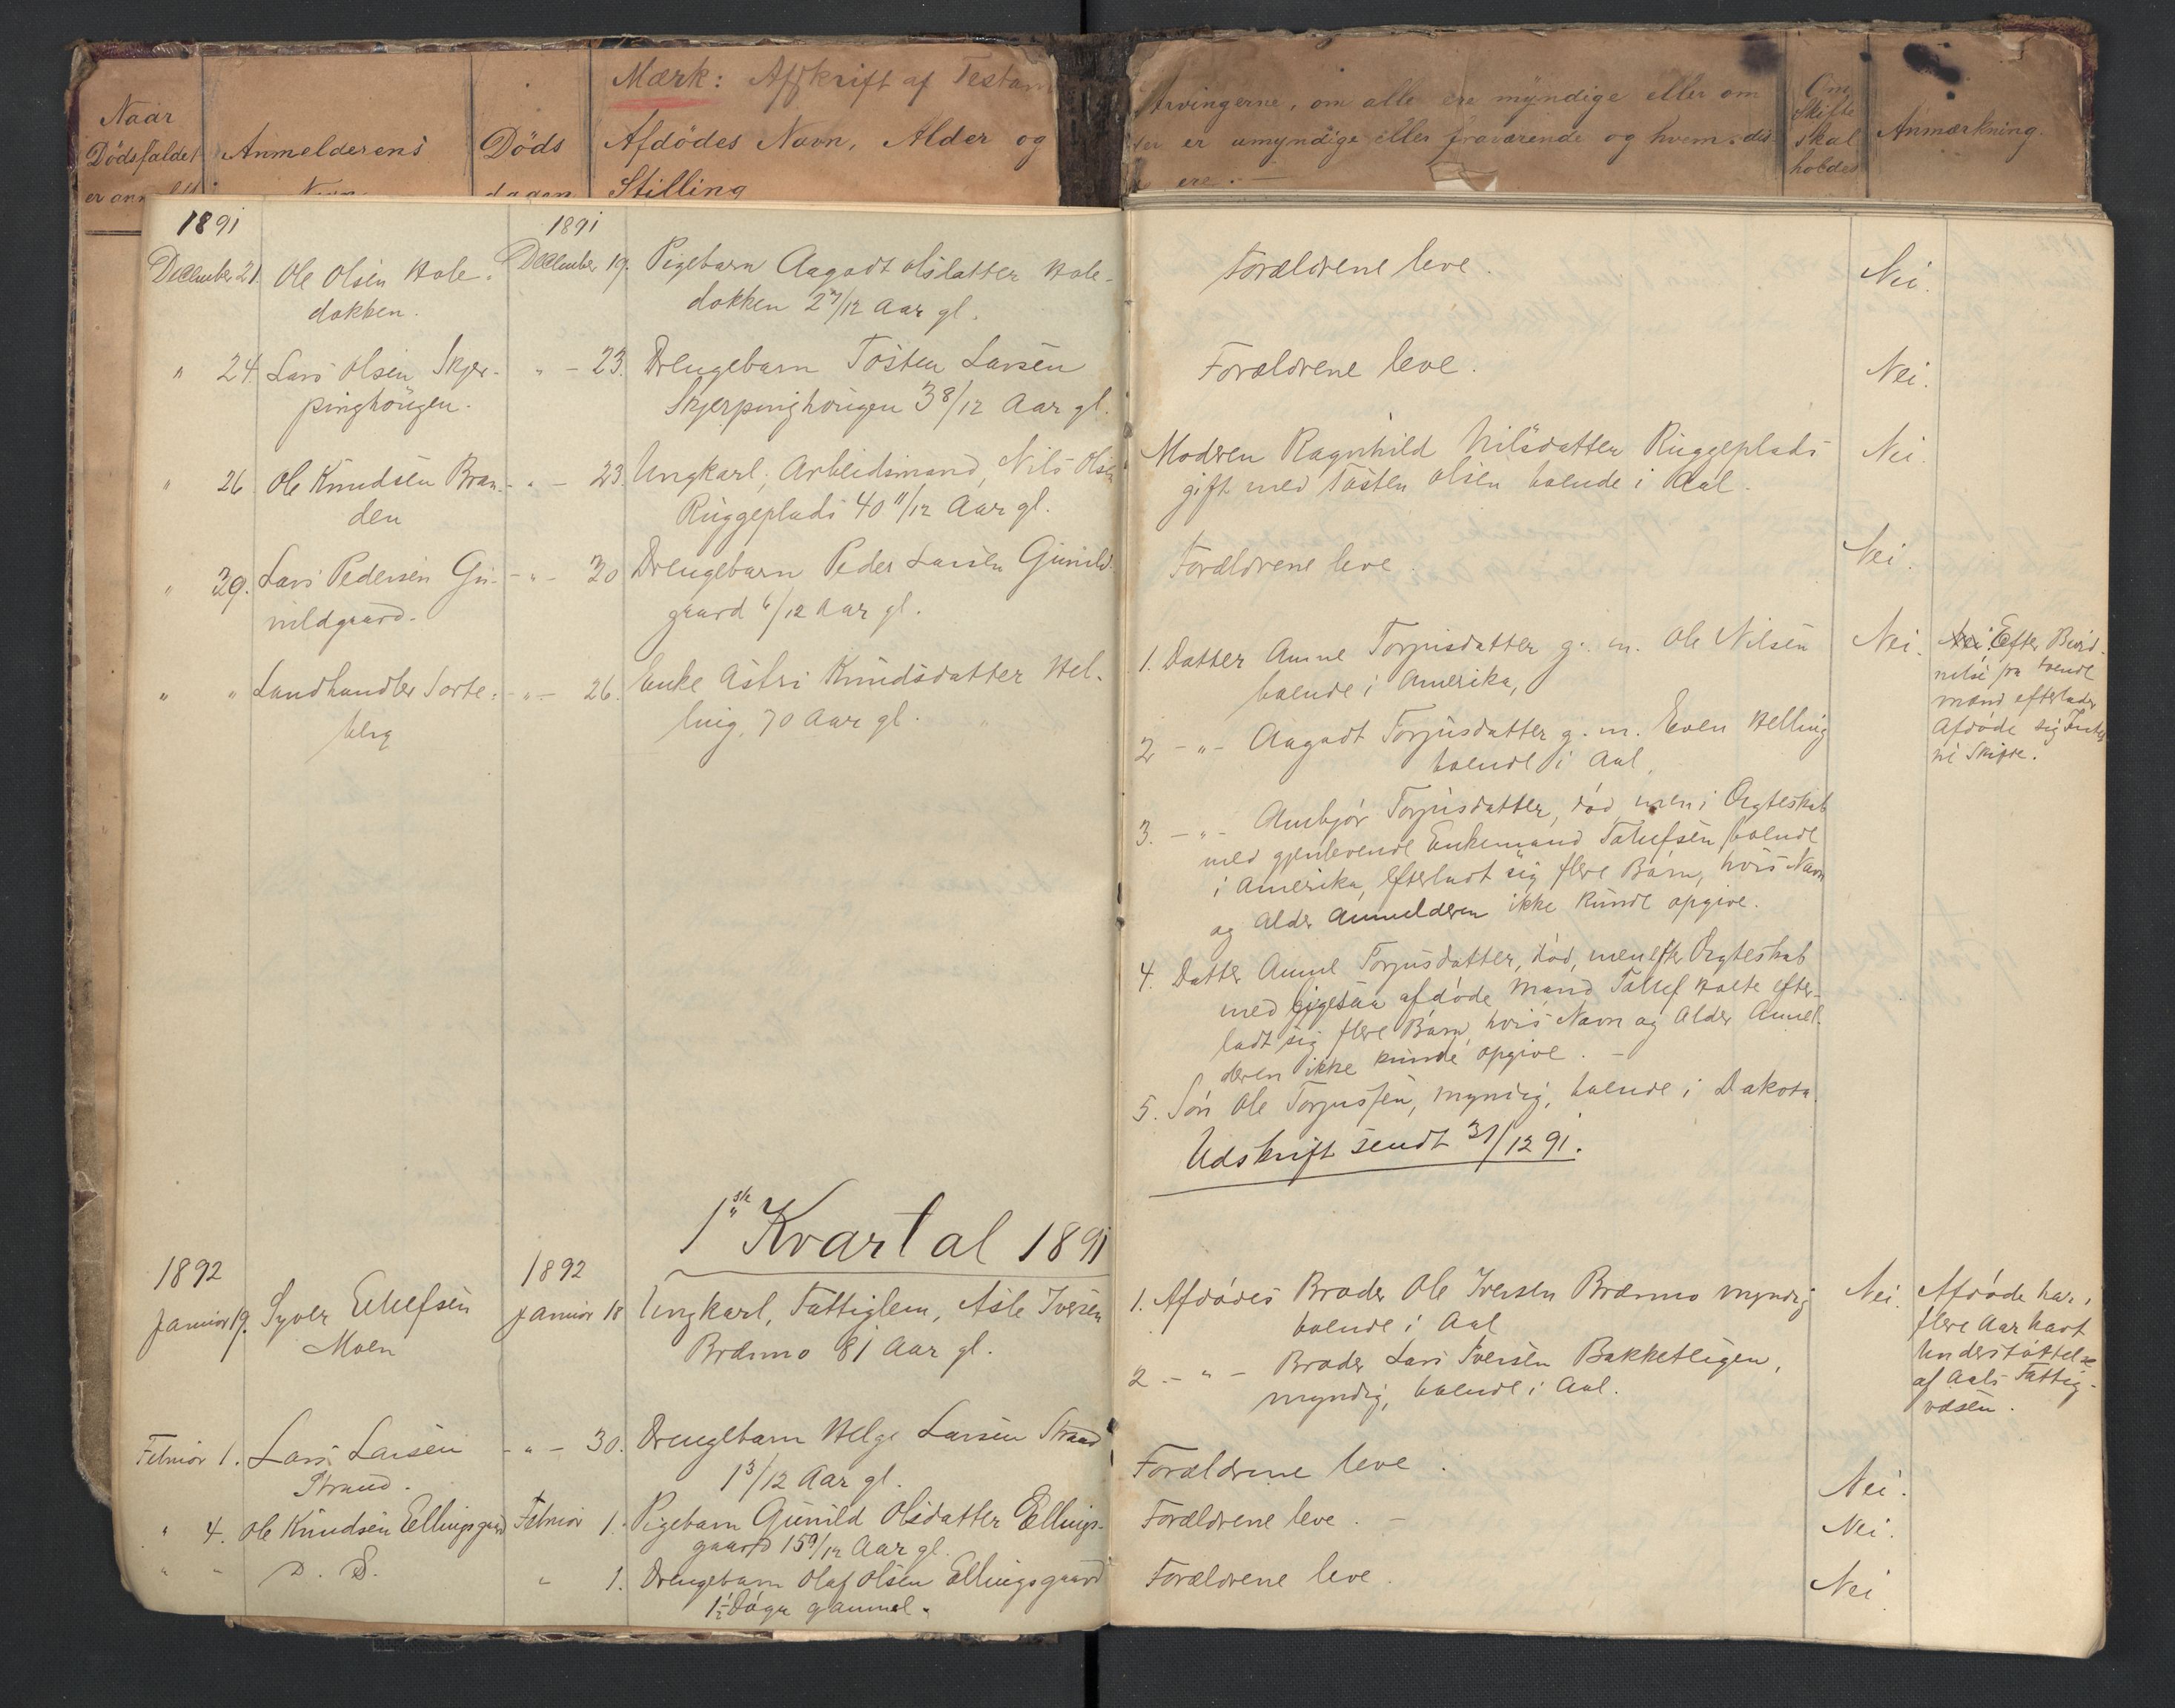 Mærk: Afskrift af Testam
Naar
Dödsfaldet
er anm
Anmelderens
Navn
Döds
dagen
Afdödes Navn, Alder og
Stilling
Arvingerne, om alle ere myndige eller om
er umyndige eller fraværende og hvem disse
ere. —
Om
Skifte
skal
holdes
Anmærkning.
1891
1891
December 21. Ole Olsen Hole- December 19. Pigebarn Aagodt Olsdatter Hole- Forældrene leve. Nei.
dokken. dokken 2 7/12 Aar gl.
" 24. Lars Olsen Skjer- " - 23. Drengebarn Tosten Larsen Forældrene leve. Nei.
pinghougen. Skjerpinghougen 3 8/12 Aar gl.
" 26. Ole Knudsen Bran- " - 23. Ungkarl, Arbeidsmand, Nils Olsen Moderen Ragnhild Nilsdatter Ruggeplads Nei.
den Ruggeplads 40 11/12 Aar gl. gift med Tosten Olsen boende i Aal.
" 29. Lars Pedersen Gu- - " - 20 Drengebarn Peder Larsen Gunild- Forældrene leve. Nei.
nildgaard. gaard 6/12 Aar gl.
" " Landhandler Torte- - " - 26. Enke Astri Knudsdatter Hel-
berg ling, 70 Aar gl.
1. Datter Anne Torjusdatter g. m. Ole Nilsen Nei.
boende i Amerika,
2. - " - Aagodt Torjusdatter g. m. Even Helling
boende i Aal,
3. - " - Ambjör Torjusdatter, död, men i Ægteskab
med gjenlevende Enkemand Tollefsen, boende
i Amerika, efterladt sig flere Börn, hvis Navn
og Alder Anmelderen ikke kunde opgive.
4. Datter Anne Torjusdatter, död, men efter Ægteskab
med ligesaa afdöde Mand Tollef Holte efter-
ladt sig flere Börn, hvis Navn og Alder Anmel-
deren ikke kunde opgive. -
5. Sön Ole Torjussen, myndig, boende i Dakota.
Udskrift sendt 31/12 91.
Nei. Efter Bevid-
nelse fra tvende
Mænd efterlader
Afdöde sig Intet
til Skifte.
1ste Kvartal 1891
1892
1892
Januar 19. Syver Ellefsen Januar 18 Ungkarl, Fattiglem, Asle Iversen
Moen Brænmo 81 Aar gl.
1. Afdödes Broder Ole Iversen Brænmo myndig Nei.
boende i Aal
2. - " - Broder Lars Iversen Bakketeigen,
myndig, boende i Aal.
Afdöde har i
flere Aar havt
Understöttelse
af Aals Fattig-
væsen.
Februar 1. Lars Larsen - " - 30. Drengebarn Helge Larsen Strand Forældrene leve. Nei.
Strand. 1 3/12 Aar gl.
" 4. Ole Knudsen Ellingsgaard Februar 1. Pigebarn Gunild Olsdatter Ellings- Forældrene leve. - Nei.
gaard 15 9/12 Aar gl.
" " D. S. " 1. Drengebarn Olaf Olsen Ellingsgaard Forældrene leve. Nei.
1 1/2 Dage gammel.